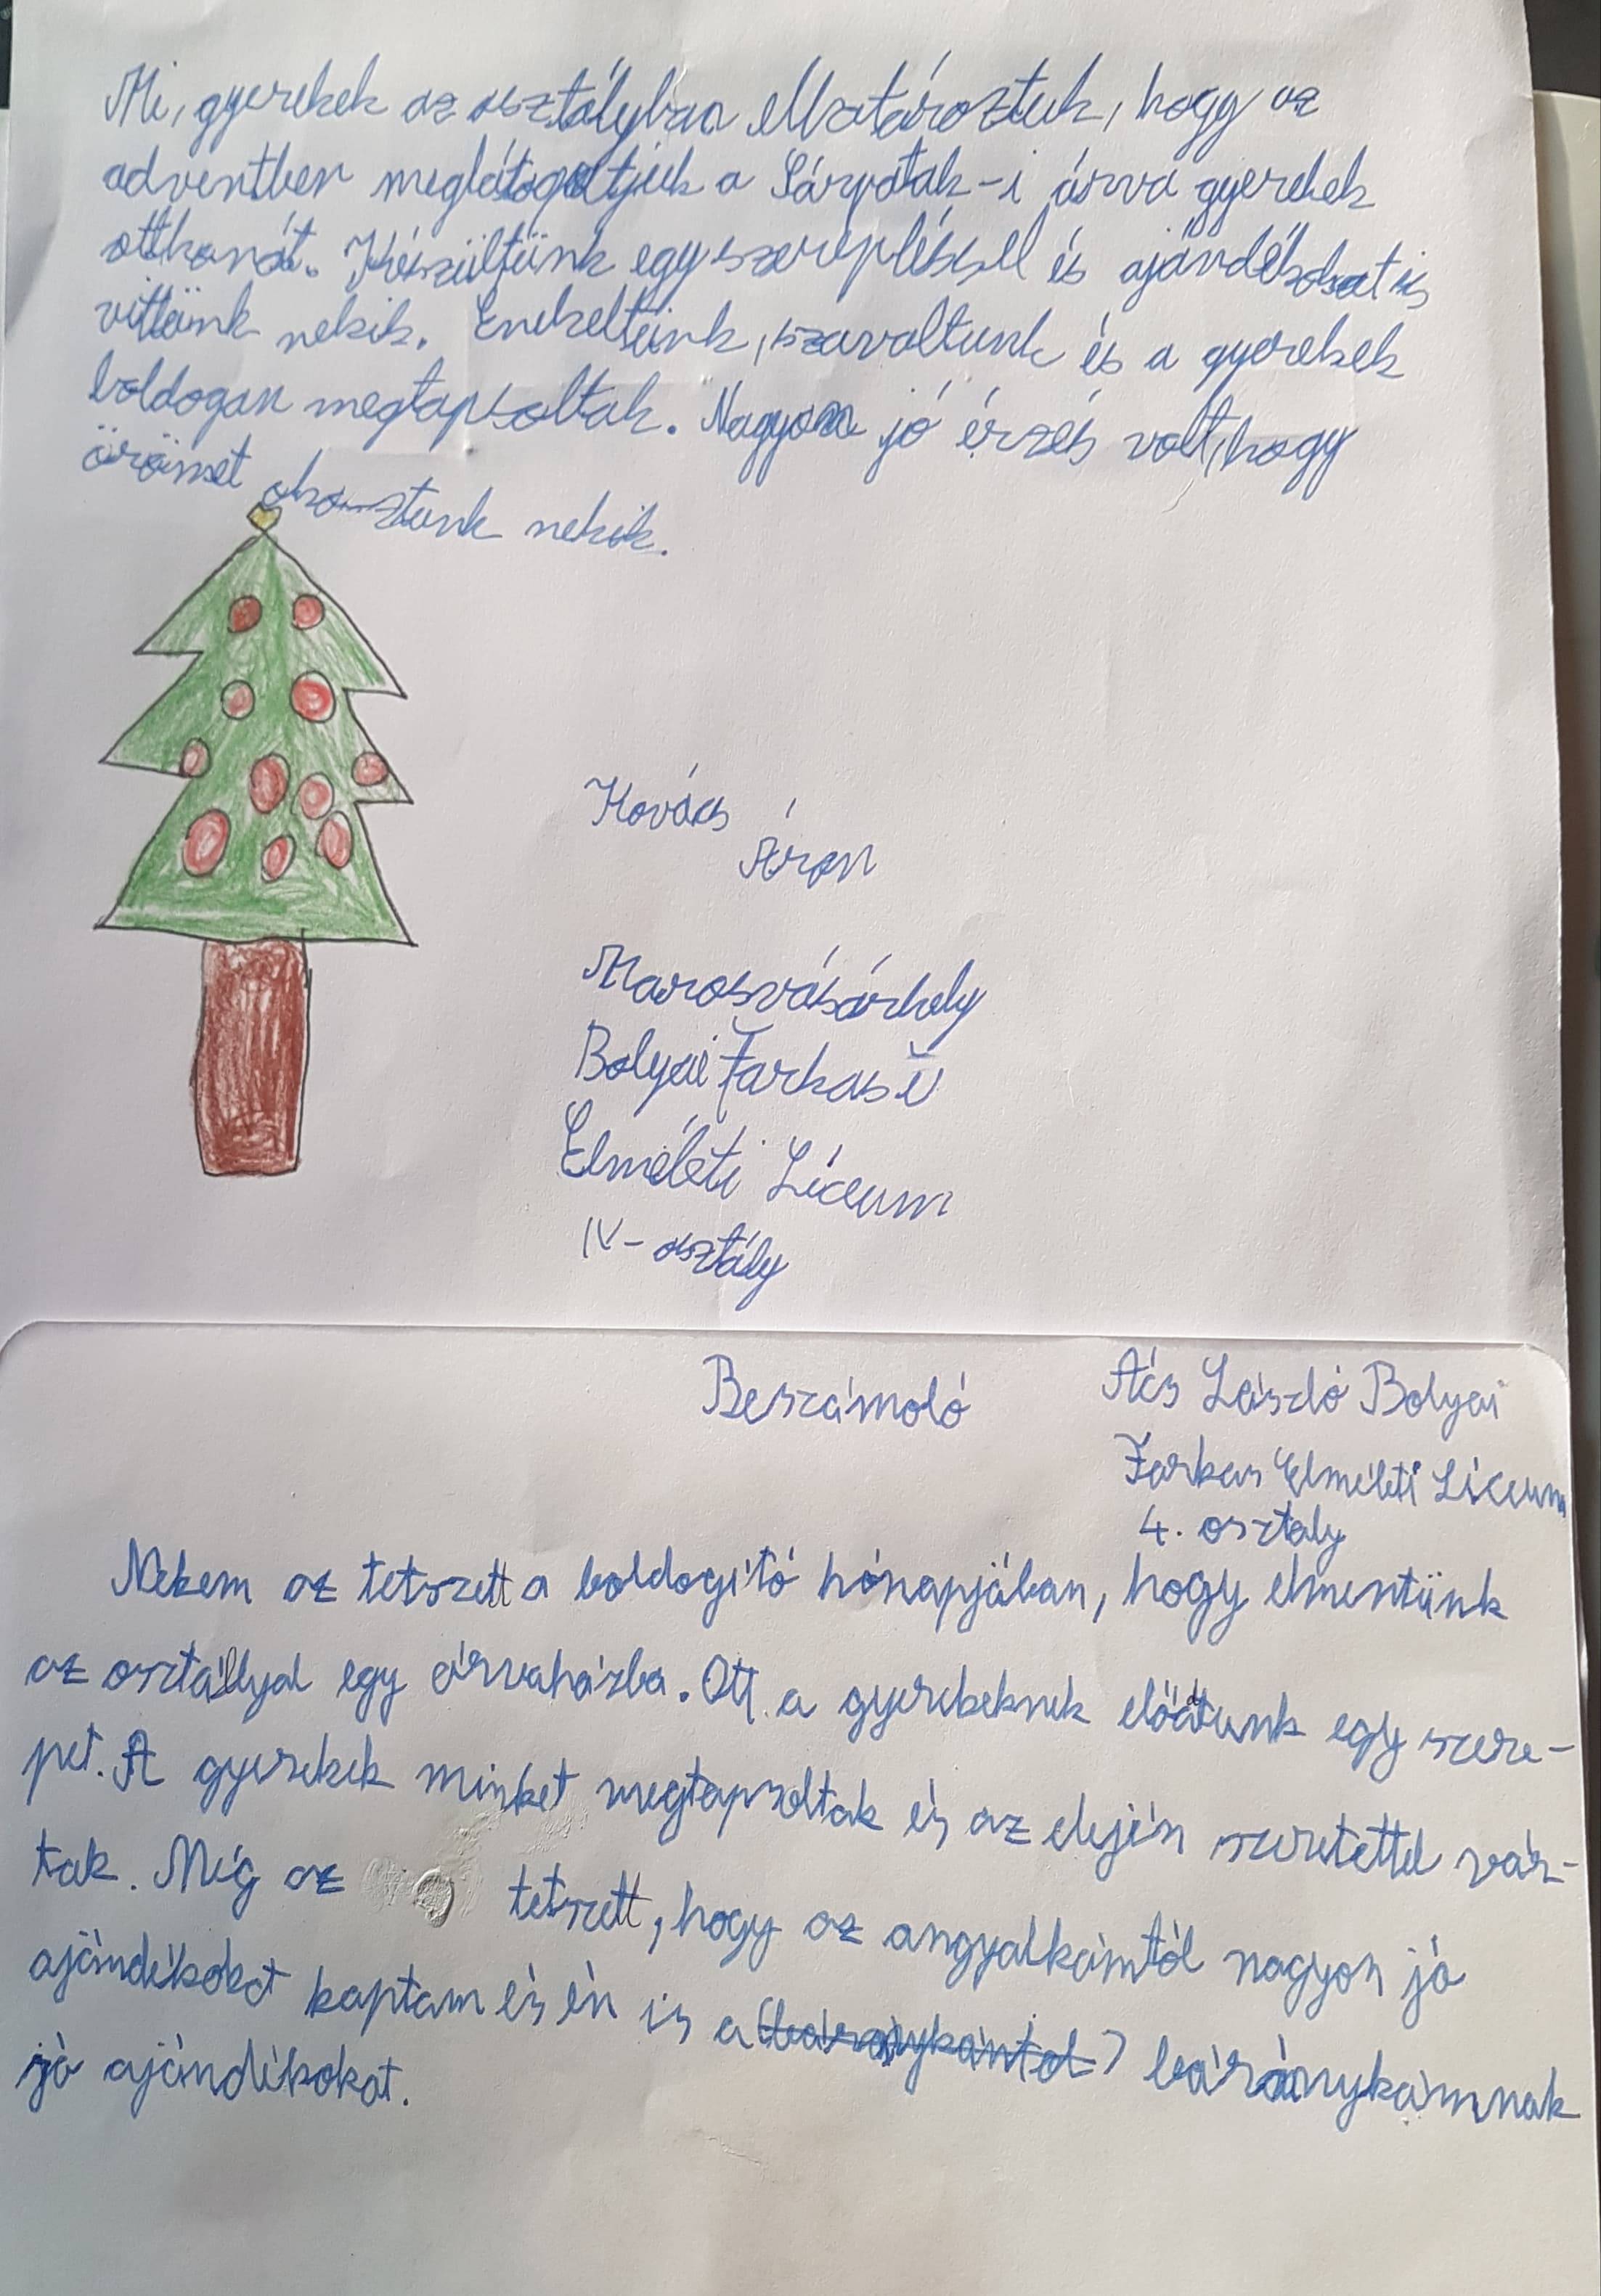 Mi, gyerekek az osztályban elhatároztuk, hogy az
adventben meglátogatjuk a Sárpatak-i árva gyerekek
otthonát. Készültünk egy szerepléssel és ajándékokat is
vittünk nekik. Énekeltünk, szavaltunk és a gyerekek
boldogan megtapsoltak. Nagyon jó érzés volt, hogy
örömet okoztunk nekik.
Kovács
Áron
Marosvásárhely
Bolyai Farkas
Elméleti Líceum
IV-osztály
Beszámoló
Ács László Bolyai
Farkas Elméleti Líceum
4. osztály
Nekem az tetszett a boldogító hónapjában, hogy elmentünk
az osztállyal egy árvaházba. Ott a gyerekeknek előadtunk egy szere-
pet. A gyerekek minket megtapsoltak és az elején szeretettel vár-
tak. Még az tetszett, hogy az angyalkámtól nagyon jó
ajándékokat kaptam és én is a (báránykámtol) báránykámnak
jó ajándékokat.